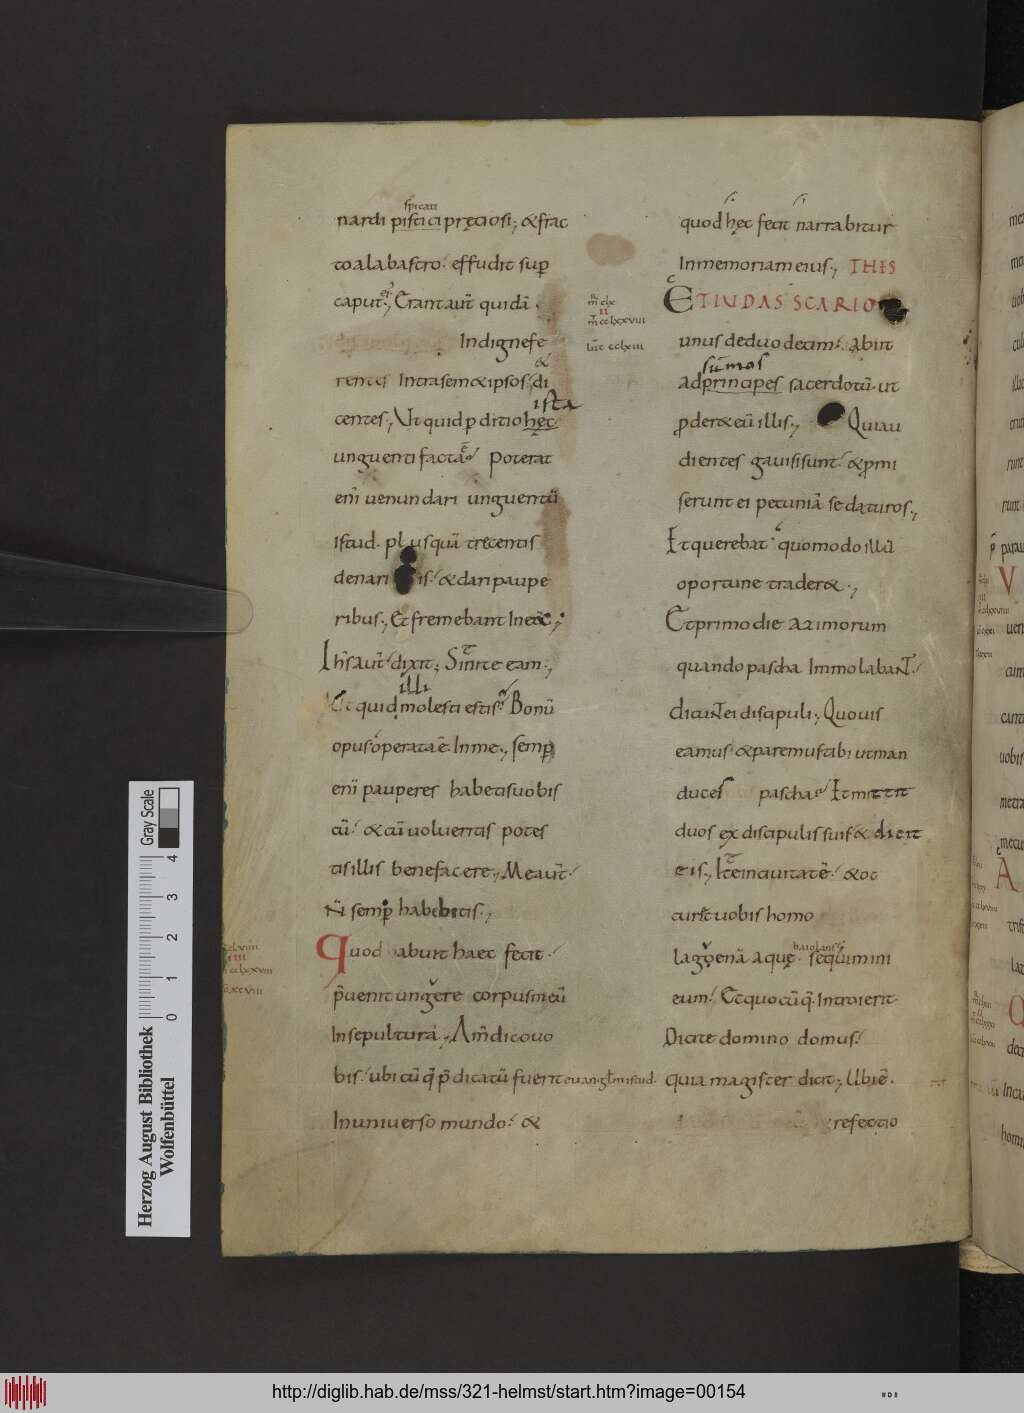 spicati
nardi pistici pręciosi; & frac
to alabastro. effudit sup̄
eiꝰ
caput; Erant aut̄ quidā.
Indigne fe
rentes Intra sem& ipsos; & di
ista
centes; Ut quid p̄ditio hęc
unguenti facta ē Poterat
enī uenundari unguentū
istud. plusquā trecentis
denariis. & dari paupe
ribus; Et fremebant In eā;
Ihs aut̄ dixit; Sinite eam;
illi
quid molesti estis. Bonū
opus operata ē In me; semp̄
enī pauperes habetis uobis
cū. & cū uolueritis potes
tis illis benefacere; Me aut̄
N̄ semp̄ habebitis;
Quod habuit haec fecit.
p̄uenit ungere corpus meū
In sepulturā; Am̄ dico uo
bis. ubicūq̄ p̄dicatū fuerit euanglm̄ istud.
In uniuerso mundo. &
quod hęc fecit narrabitur
In memoriam eius; THIS
ET IUDAS SCARIO
unus de duodecim. abiit
sūmos
ad principes sacerdotū. ut
p̄der& eū illis; Qui au
dientes gauisi sunt. & p̄mi
serunt ei pecuniā se daturos;
Et querebat quomodo illū
oportune trader&;
Et primo die azimorum
quando pascha Immolabant.
Dicunt ei discipuli; Quo uis
eamus. & paremus tibi ut man
duces pascha Et mittit
duos ex discipulis suis & dicit
eis; Ite in ciuitatē. & oc
curr& uobis homo
baiolans
lagoenā aquę. sequimini
eum. Et quocūq̄. Introierit
Dicite domino domus.
quia magister dicit; Ubi ē.
refectio
Gray Scale
4
3
2
1
0
Herzog August Bibliothek
Wolfenbüttel
http://diglib.hab.de/mss/321-helmst/start.htm?image=00154